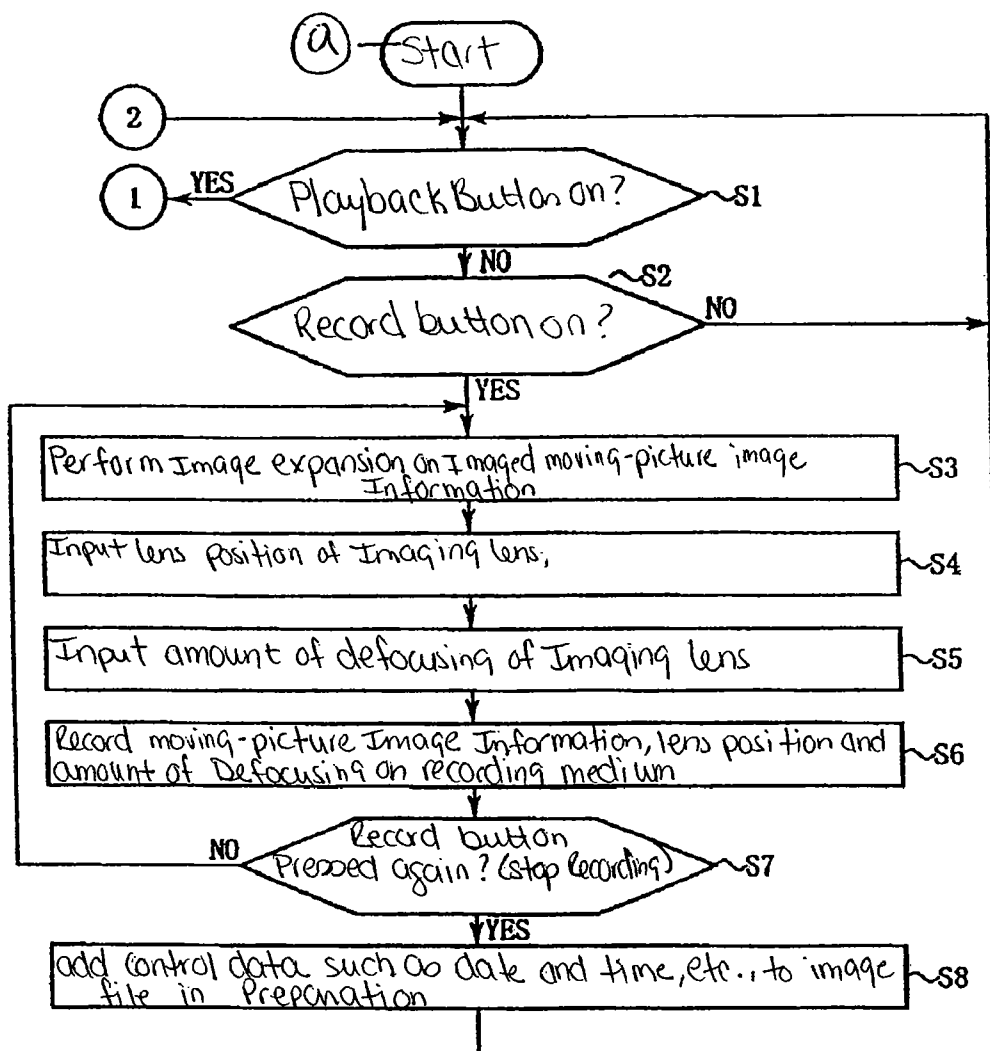 a Start
2
1 YES Playback Button on? S1
NO
S2
Record button on? NO
YES
Perform Image expansion on Imaged moving-picture image
Information
S3
Input lens position of Imaging lens, S4
Input amount of defocusing of Imaging lens S5
Record moving-picture Image Information, lens position and
amount of Defocusing on recording medium
S6
NO Record button
Pressed again? (stop Recording) S7
YES
add control data such as date and time, etc., to image
file in Preparation
S8